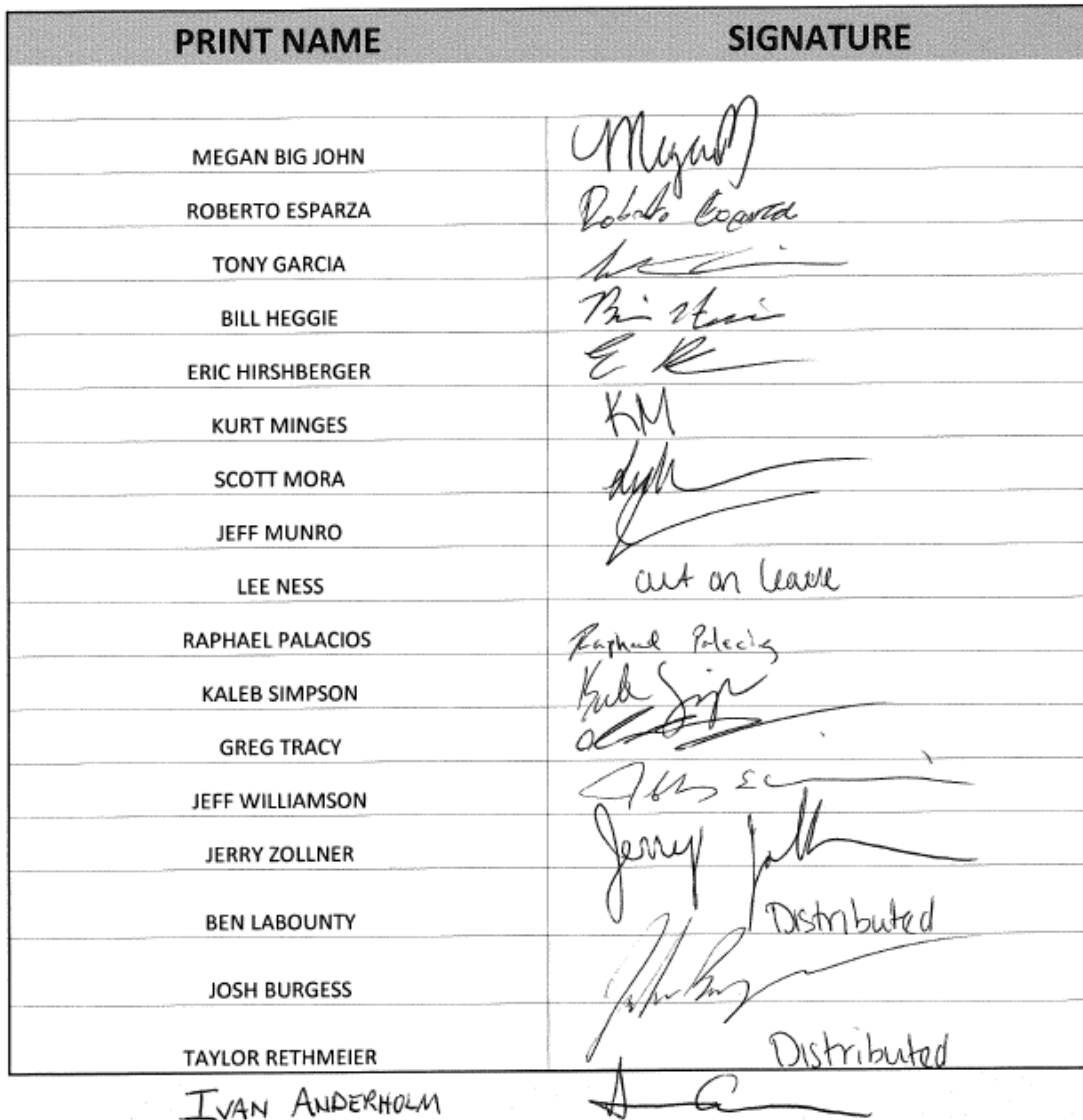 PRINT NAME SIGNATURE
MEGAN BIG JOHN Megan
ROBERTO ESPARZA Roberto Esparza
TONY GARCIA
BILL HEGGIE
ERIC HIRSHBERGER
KURT MINGES KM
SCOTT MORA
JEFF MUNRO
LEE NESS out on leave
RAPHAEL PALACIOS Raphael Palacios
KALEB SIMPSON
GREG TRACY
JEFF WILLIAMSON
JERRY ZOLLNER Jerry
BEN LABOUNTY Distributed
JOSH BURGESS
TAYLOR RETHMEIER Distributed
IVAN ANDERHOLM